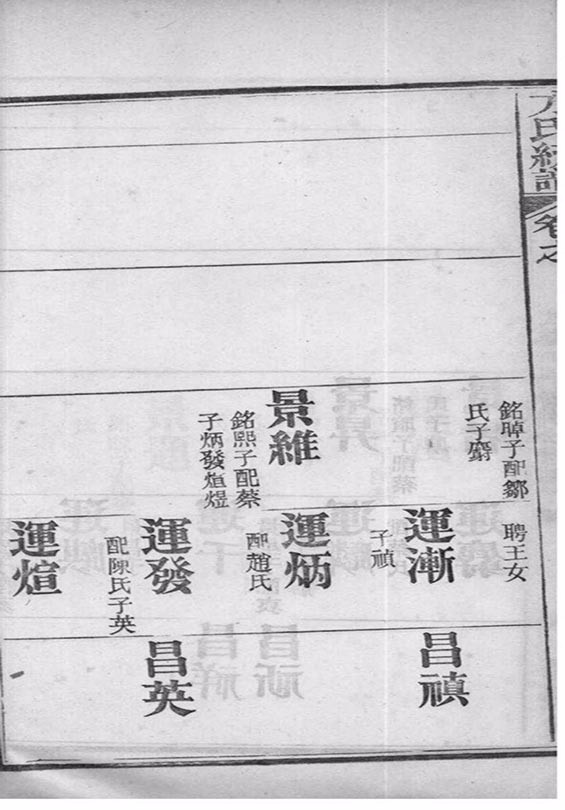 氏譜卷之
銘子配鄒
氏子
景維
銘熙子配蔡
子炳發煊煜
聘王女
運漸
子禎
運炳
配趙氏
運發
配陳氏子英
運煊
昌禎
昌英